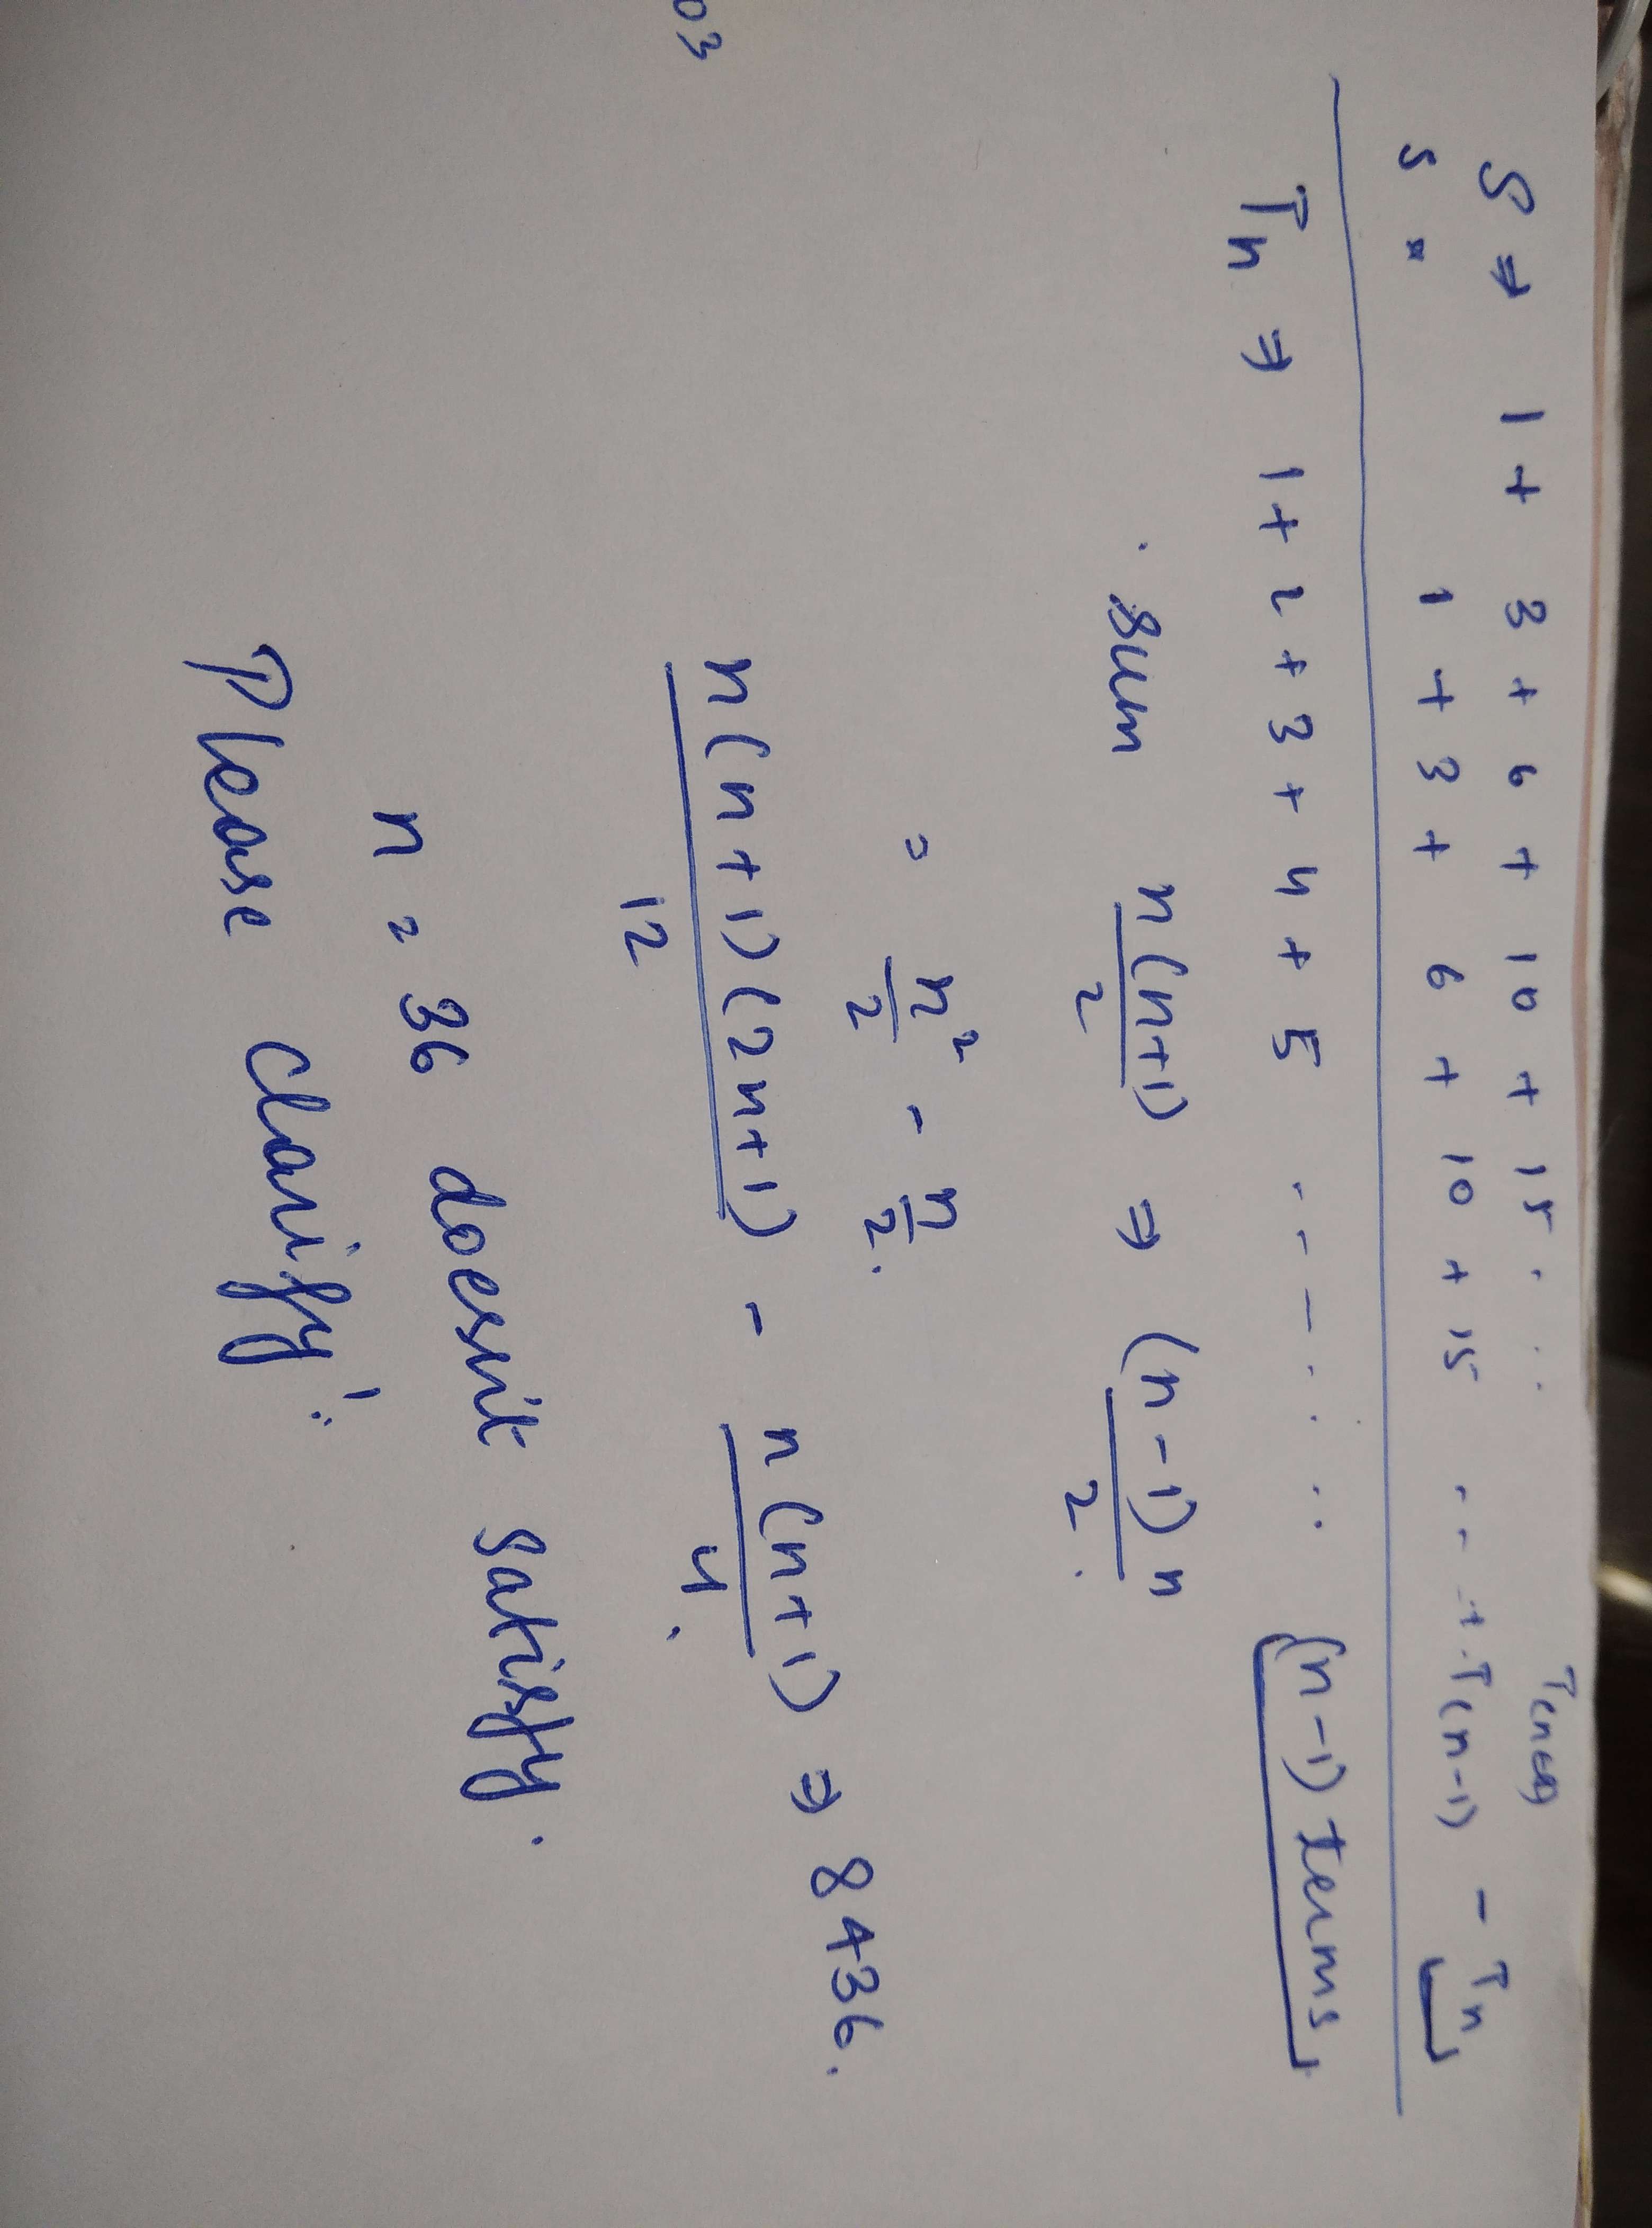 S ⇒ 1 + 3 + 6 + 10 + 15 . . . .
S = 1 + 3 + 6 + 10 + 15 - - - + T(n-1) - Tn
Tn ⇒ 1 + 2 + 3 + 4 + 5 - - - - . . . . (n-1) terms
. sum n(n+1)/2 ⇒ (n-1)n/2.
= n²/2 - n/2.
n(n+1)(2n+1)/12 - n(n+1)/4. ⇒ 8436.
n = 36 doesn't satisfy.
Please clarify!.
03